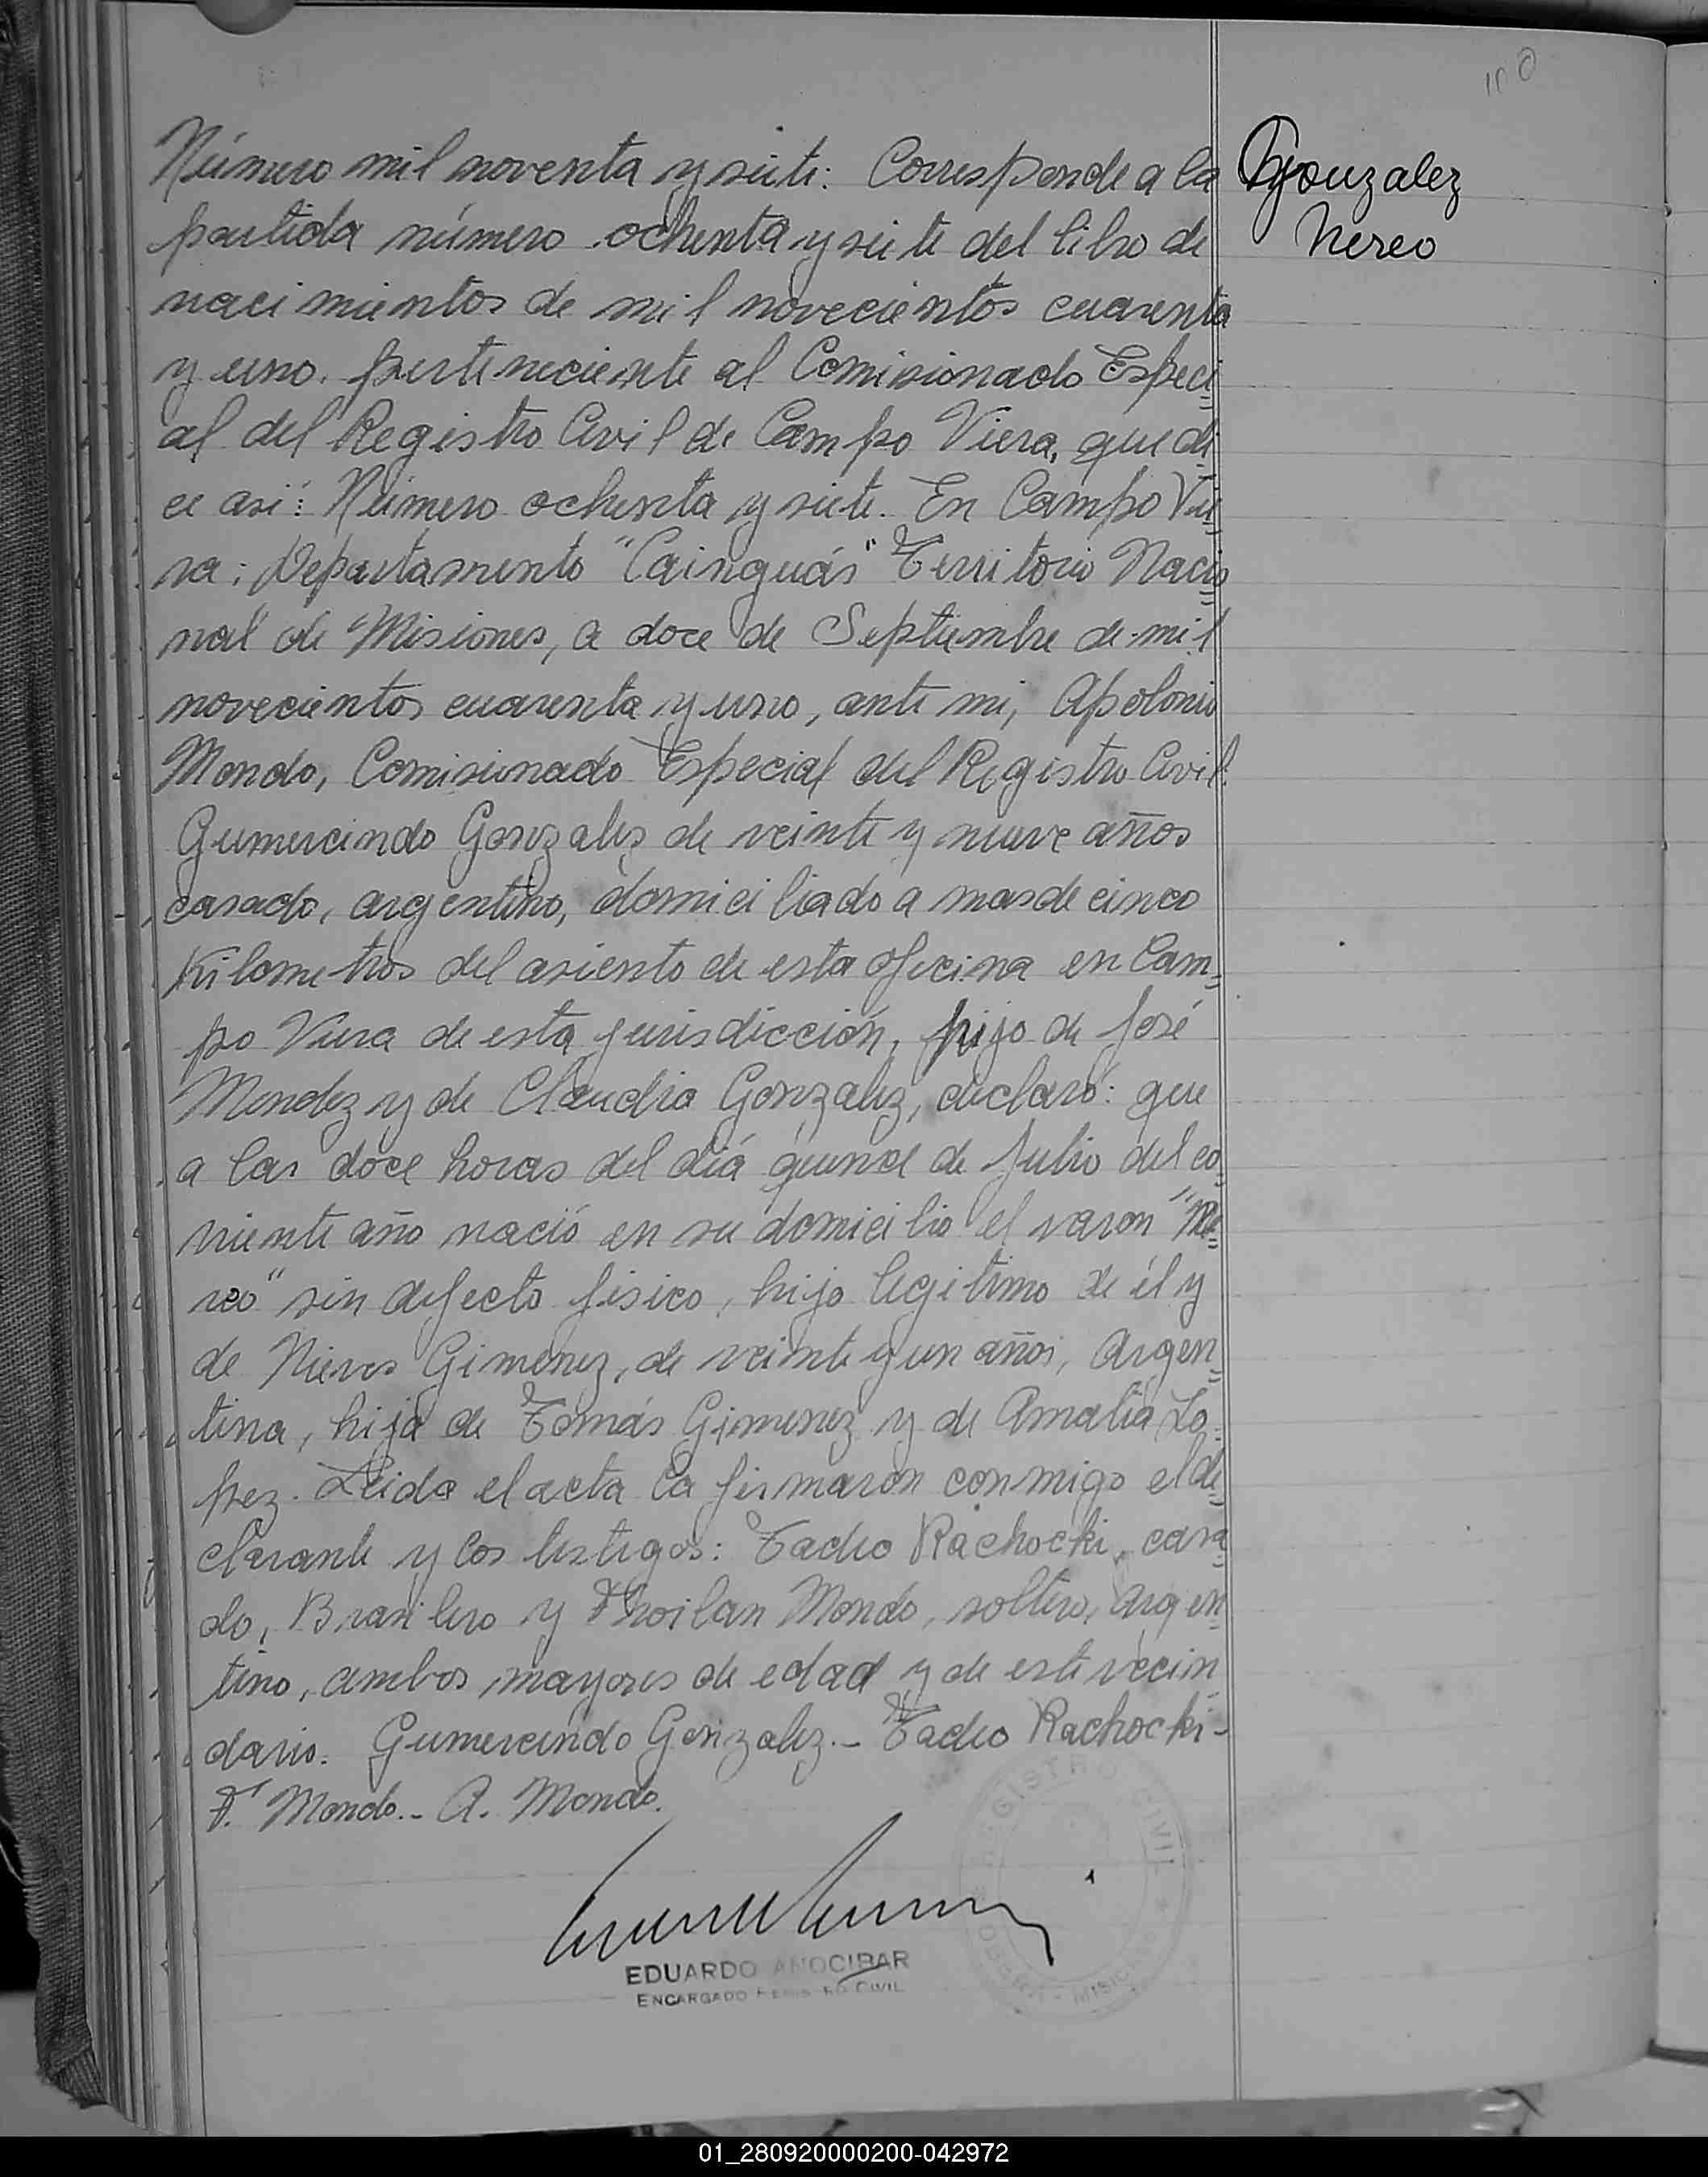 Número mil noventa y siete: Corresponde a la
partida número ochenta y siete del libro de
nacimientos de mil novecientos cuarenta
y uno. perteneciente al Comisionado Especi=
al del Registro Civil de Campo Viera, que di=
ce así: Número ochenta y siete. En Campo Vie=
ra; Departamento "Cainguás" Territorio Nacio=
nal de Misiones, a doce de Septiembre de mil
novecientos cuarenta y uno, ante mi, Apolonio
Mondo, Comisionado Especial del Registro Civil.
Gumercindo Gonzalez de veinte y nueve años
casado, argentino, domiciliado a mas de cinco
Kilometros del asiento de esta oficina en Cam=
po Viera de esta jurisdicción, hijo de José
Mendez y de Claudia Gonzalez, declaró: que
a las doce horas del día quince de Julio del co=
rriente año nació en su domicilio el varon "Ne=
reo" sin defecto fisico, hijo legitimo de él y
de Nieves Gimenez, de veinte y un años, Argen=
tina, hija de Tomás Gimenez y de Amalia Lo=
pez. Leida el acta la firmaron conmigo el de=
clarante y los testigos: Tadeo Rachocki, casa=
do, Brasilero y Froilan Mondo, soltero, Argen=
tino, ambos mayores de edad y de este vecin=
dario. Gumercindo Gonzalez.- Tadeo Rachocki-
F. Mondo.- A. Mondo.
Gonzalez
Nereo
EDUARDO ANOCIBAR
ENCARGADO REGISTRO CIVIL
REGISTRO CIVIL
OBERA - MISIONES
01_280920000200-042972